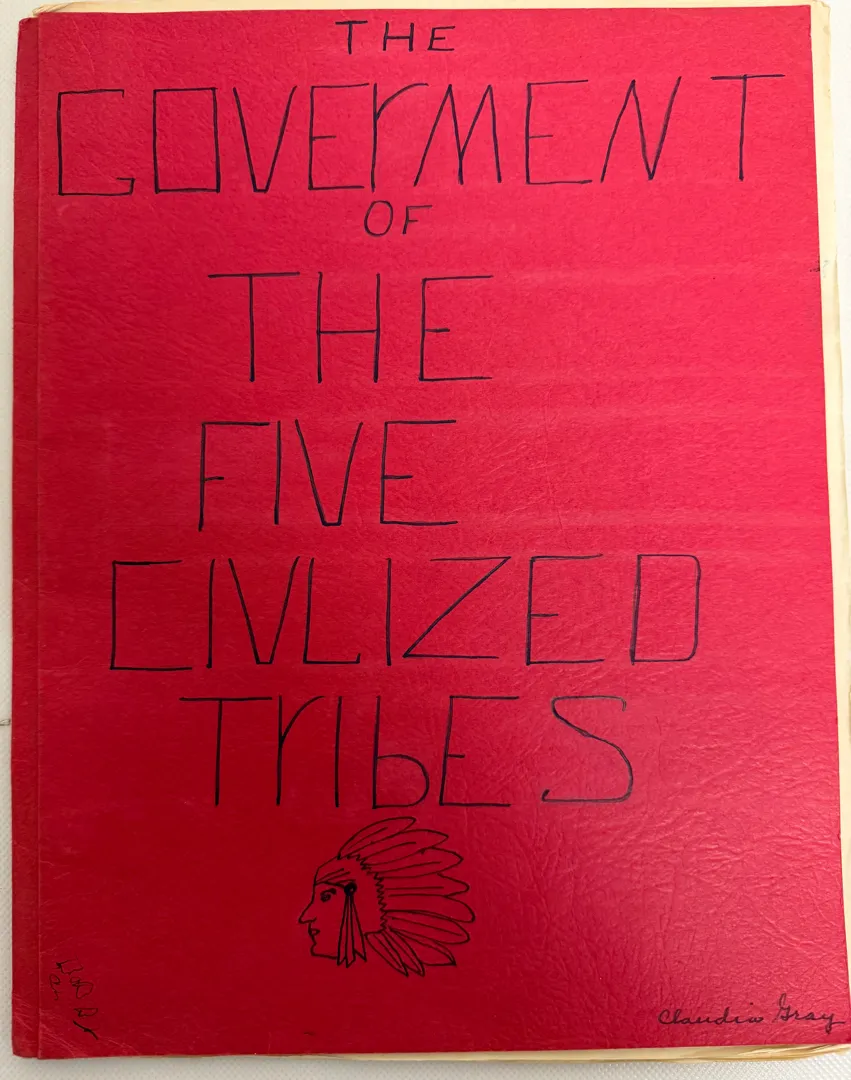 THE
GOVErMENT
OF
THE
FIVE
CIVLIZED
TrIbES
Claudia Gray